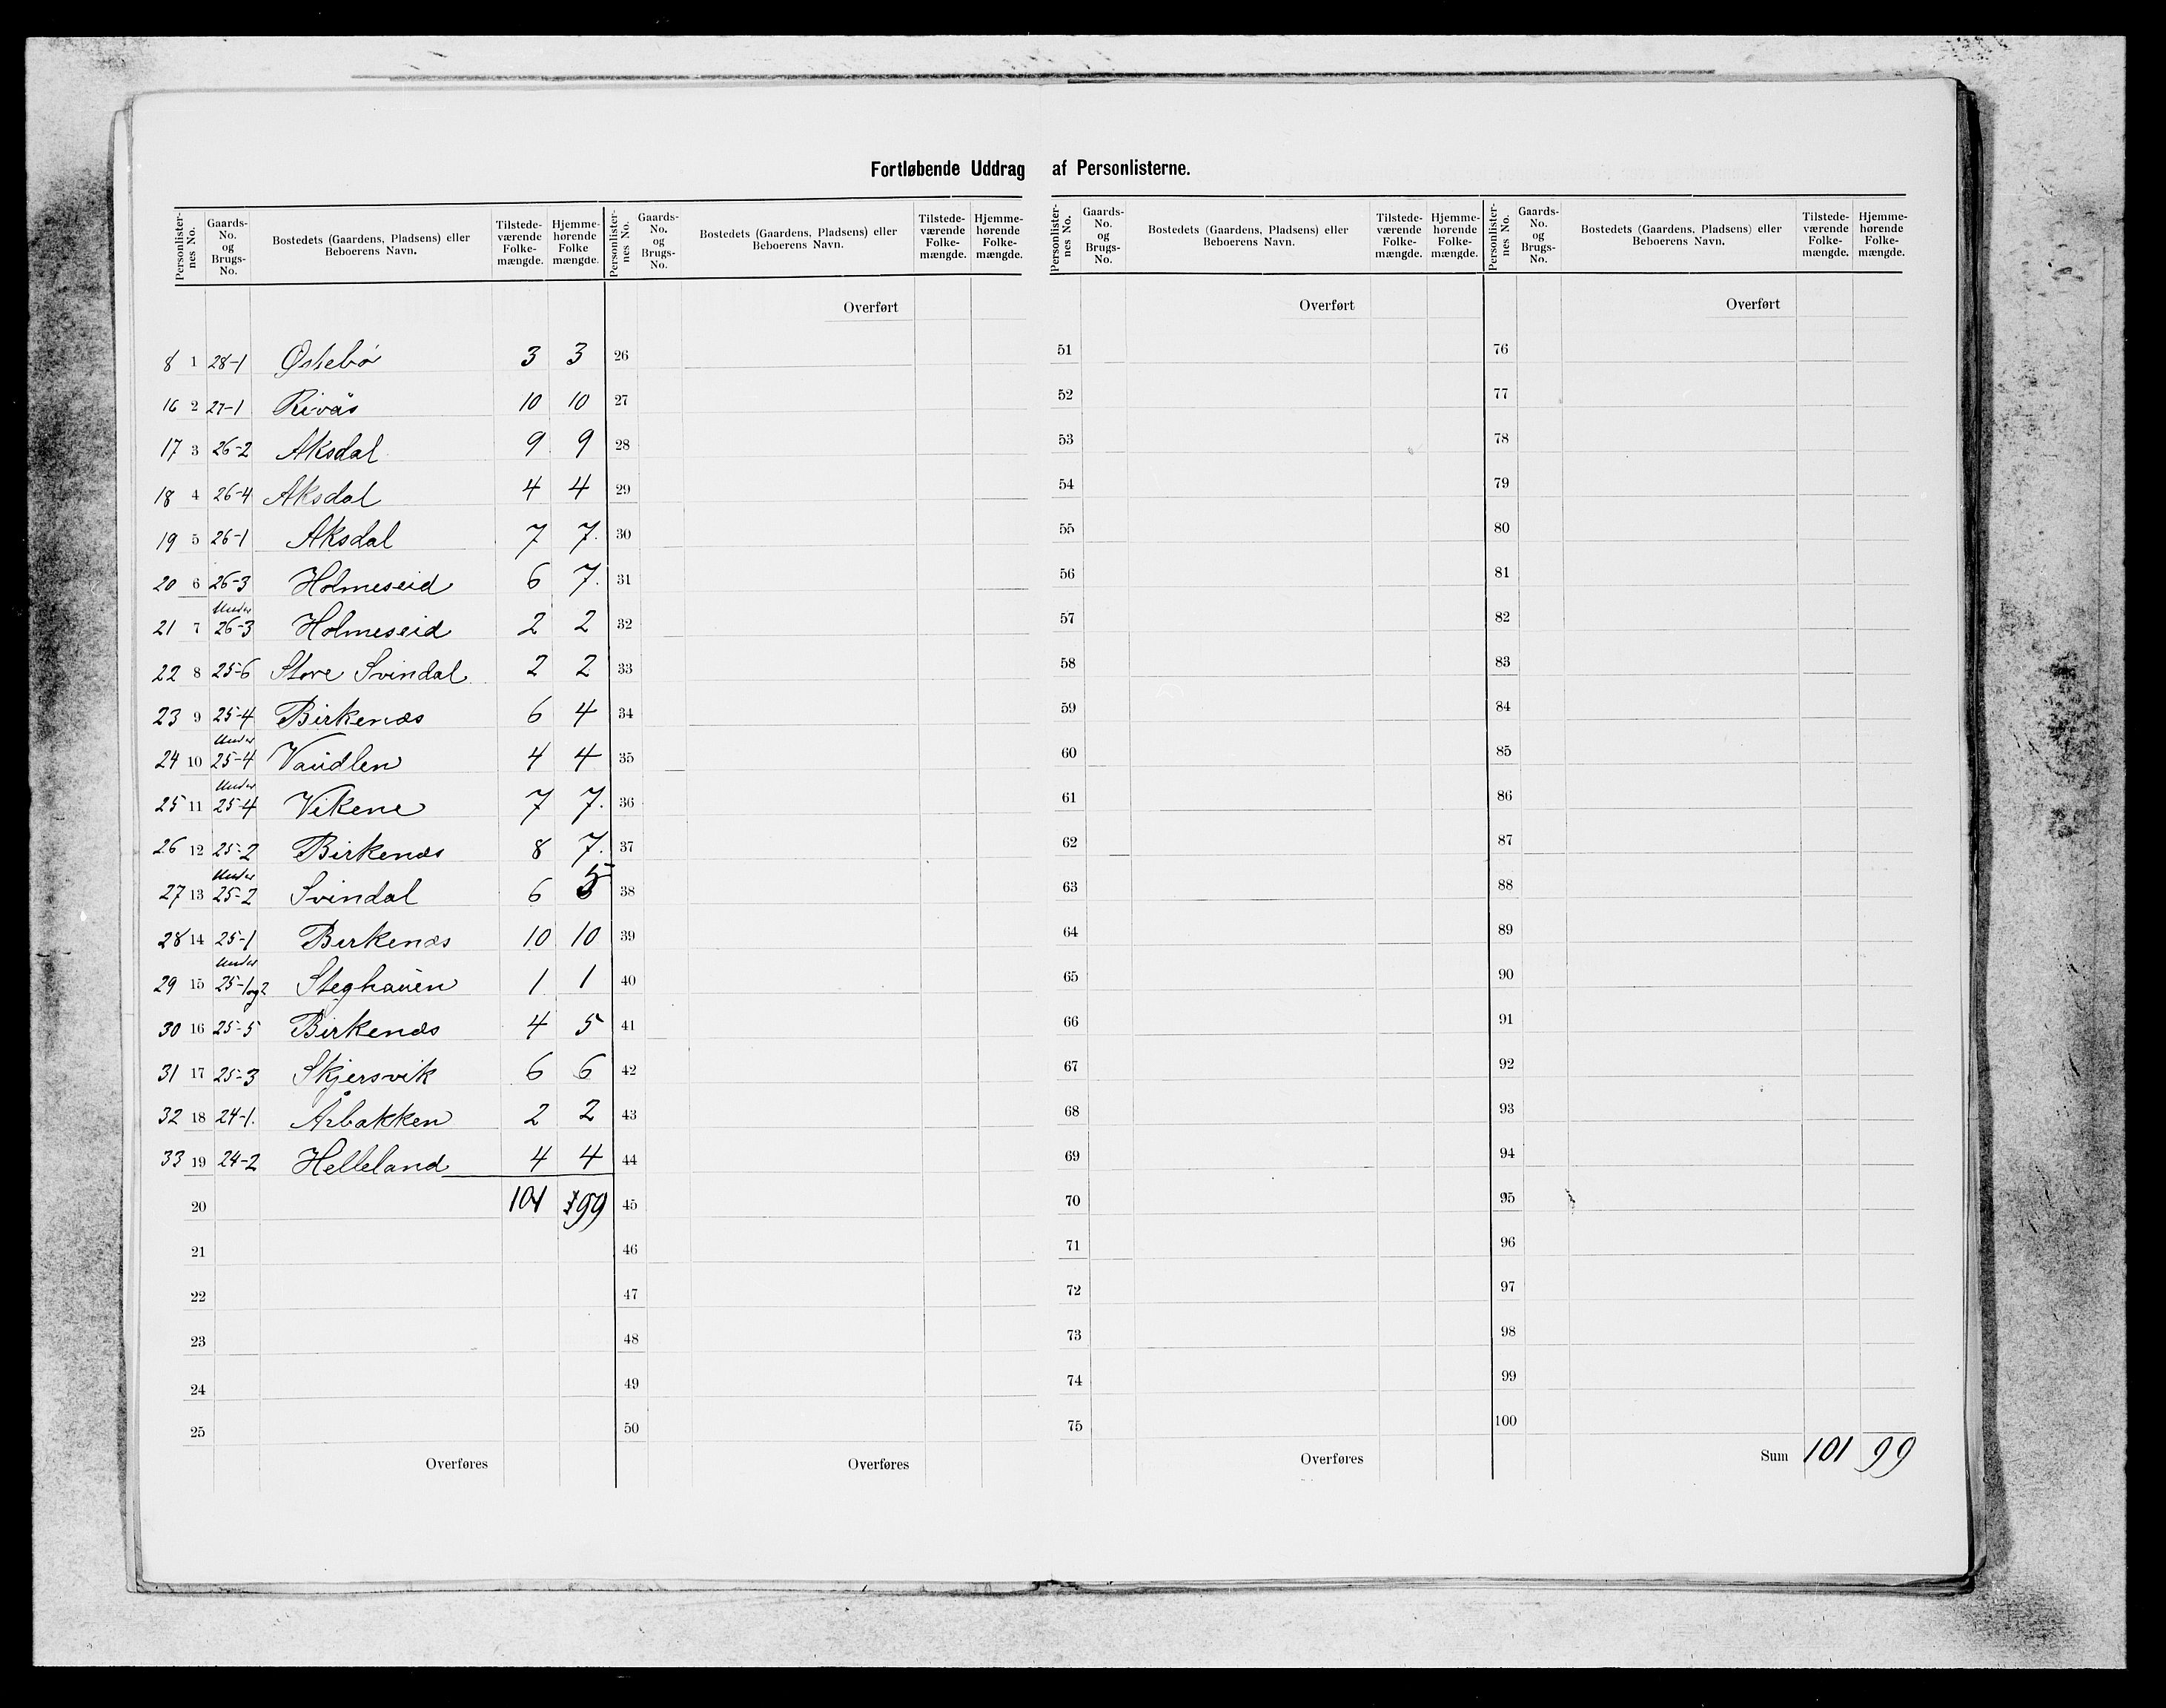 Fortløbende Uddrag af Personlisterne.
Personlister-nes No. | Gaards-No. og Brugs-No. | Bostedets (Gaardens, Pladsens) eller Beboerens Navn. | Tilstede-værende Folke-mængde. | Hjemme-hørende Folke mængde.
Personlister-nes No. | Gaards-No. og Brugs-No. | Bostedets (Gaardens, Pladsens) eller Beboerens Navn. | Tilstede-værende Folke-mængde. | Hjemme-hørende Folke-mængde.
Personlister-nes No. | Gaards-No. og Brugs-No. | Bostedets (Gaardens, Pladsens) eller Beboerens Navn. | Tilstede-værende Folke-mængde. | Hjemme-hørende Folke-mængde.
Personlister-nes No. | Gaards-No. og Brugs-No. | Bostedets (Gaardens, Pladsens) eller Beboerens Navn. | Tilstede-værende Folke-mængde. | Hjemme-hørende Folke-mængde.
Overført Overført Overført
8 1 28-1 Østebø 3 3 26 51 76
16 2 27-1 Rivås 10 10 27 52 77
17 3 26-2 Aksdal 9 9 28 53 78
18 4 26-4 Aksdal 4 4 29 54 79
19 5 26-1 Aksdal 7 7. 30 55 80
20 6 26-3 Holmeseid 6 7. 31 56 81
21 7 Under 26-3 Holmeseid 2 2 32 57 82
22 8 25-6 Store Svindal 2 2 33 58 83
23 9 25-4 Birkenæs 6 4 34 59 84
24 10 Under 25-4 Vaudlen 4 4 35 60 85
25 11 Under 25-4 Vikene 7 7. 36 61 86
26 12 25-2 Birkenæs 8 7. 37 62 87
27 13 Under 25-2 Svindal 6 5 38 63 88
28 14 25-1 Birkenæs 10 10 39 64 89
29 15 Under 25-1og2 Steghauen 1 1 40 65 90
30 16 25-5 Birkenæs 4 5 41 66 91
31 17 25-3 Skjersvik 6 6 42 67 92
32 18 24-1. Årbakken 2 2 43 68 93
33 19 24-2 Helleland 4 4 44 69 94
20 101 99 45 70 95
21 46 71 96
22 47 72 97
23 48 73 98
24 49 74 99
25 50 75 100
Overføres Overføres Overføres Sum 101 99